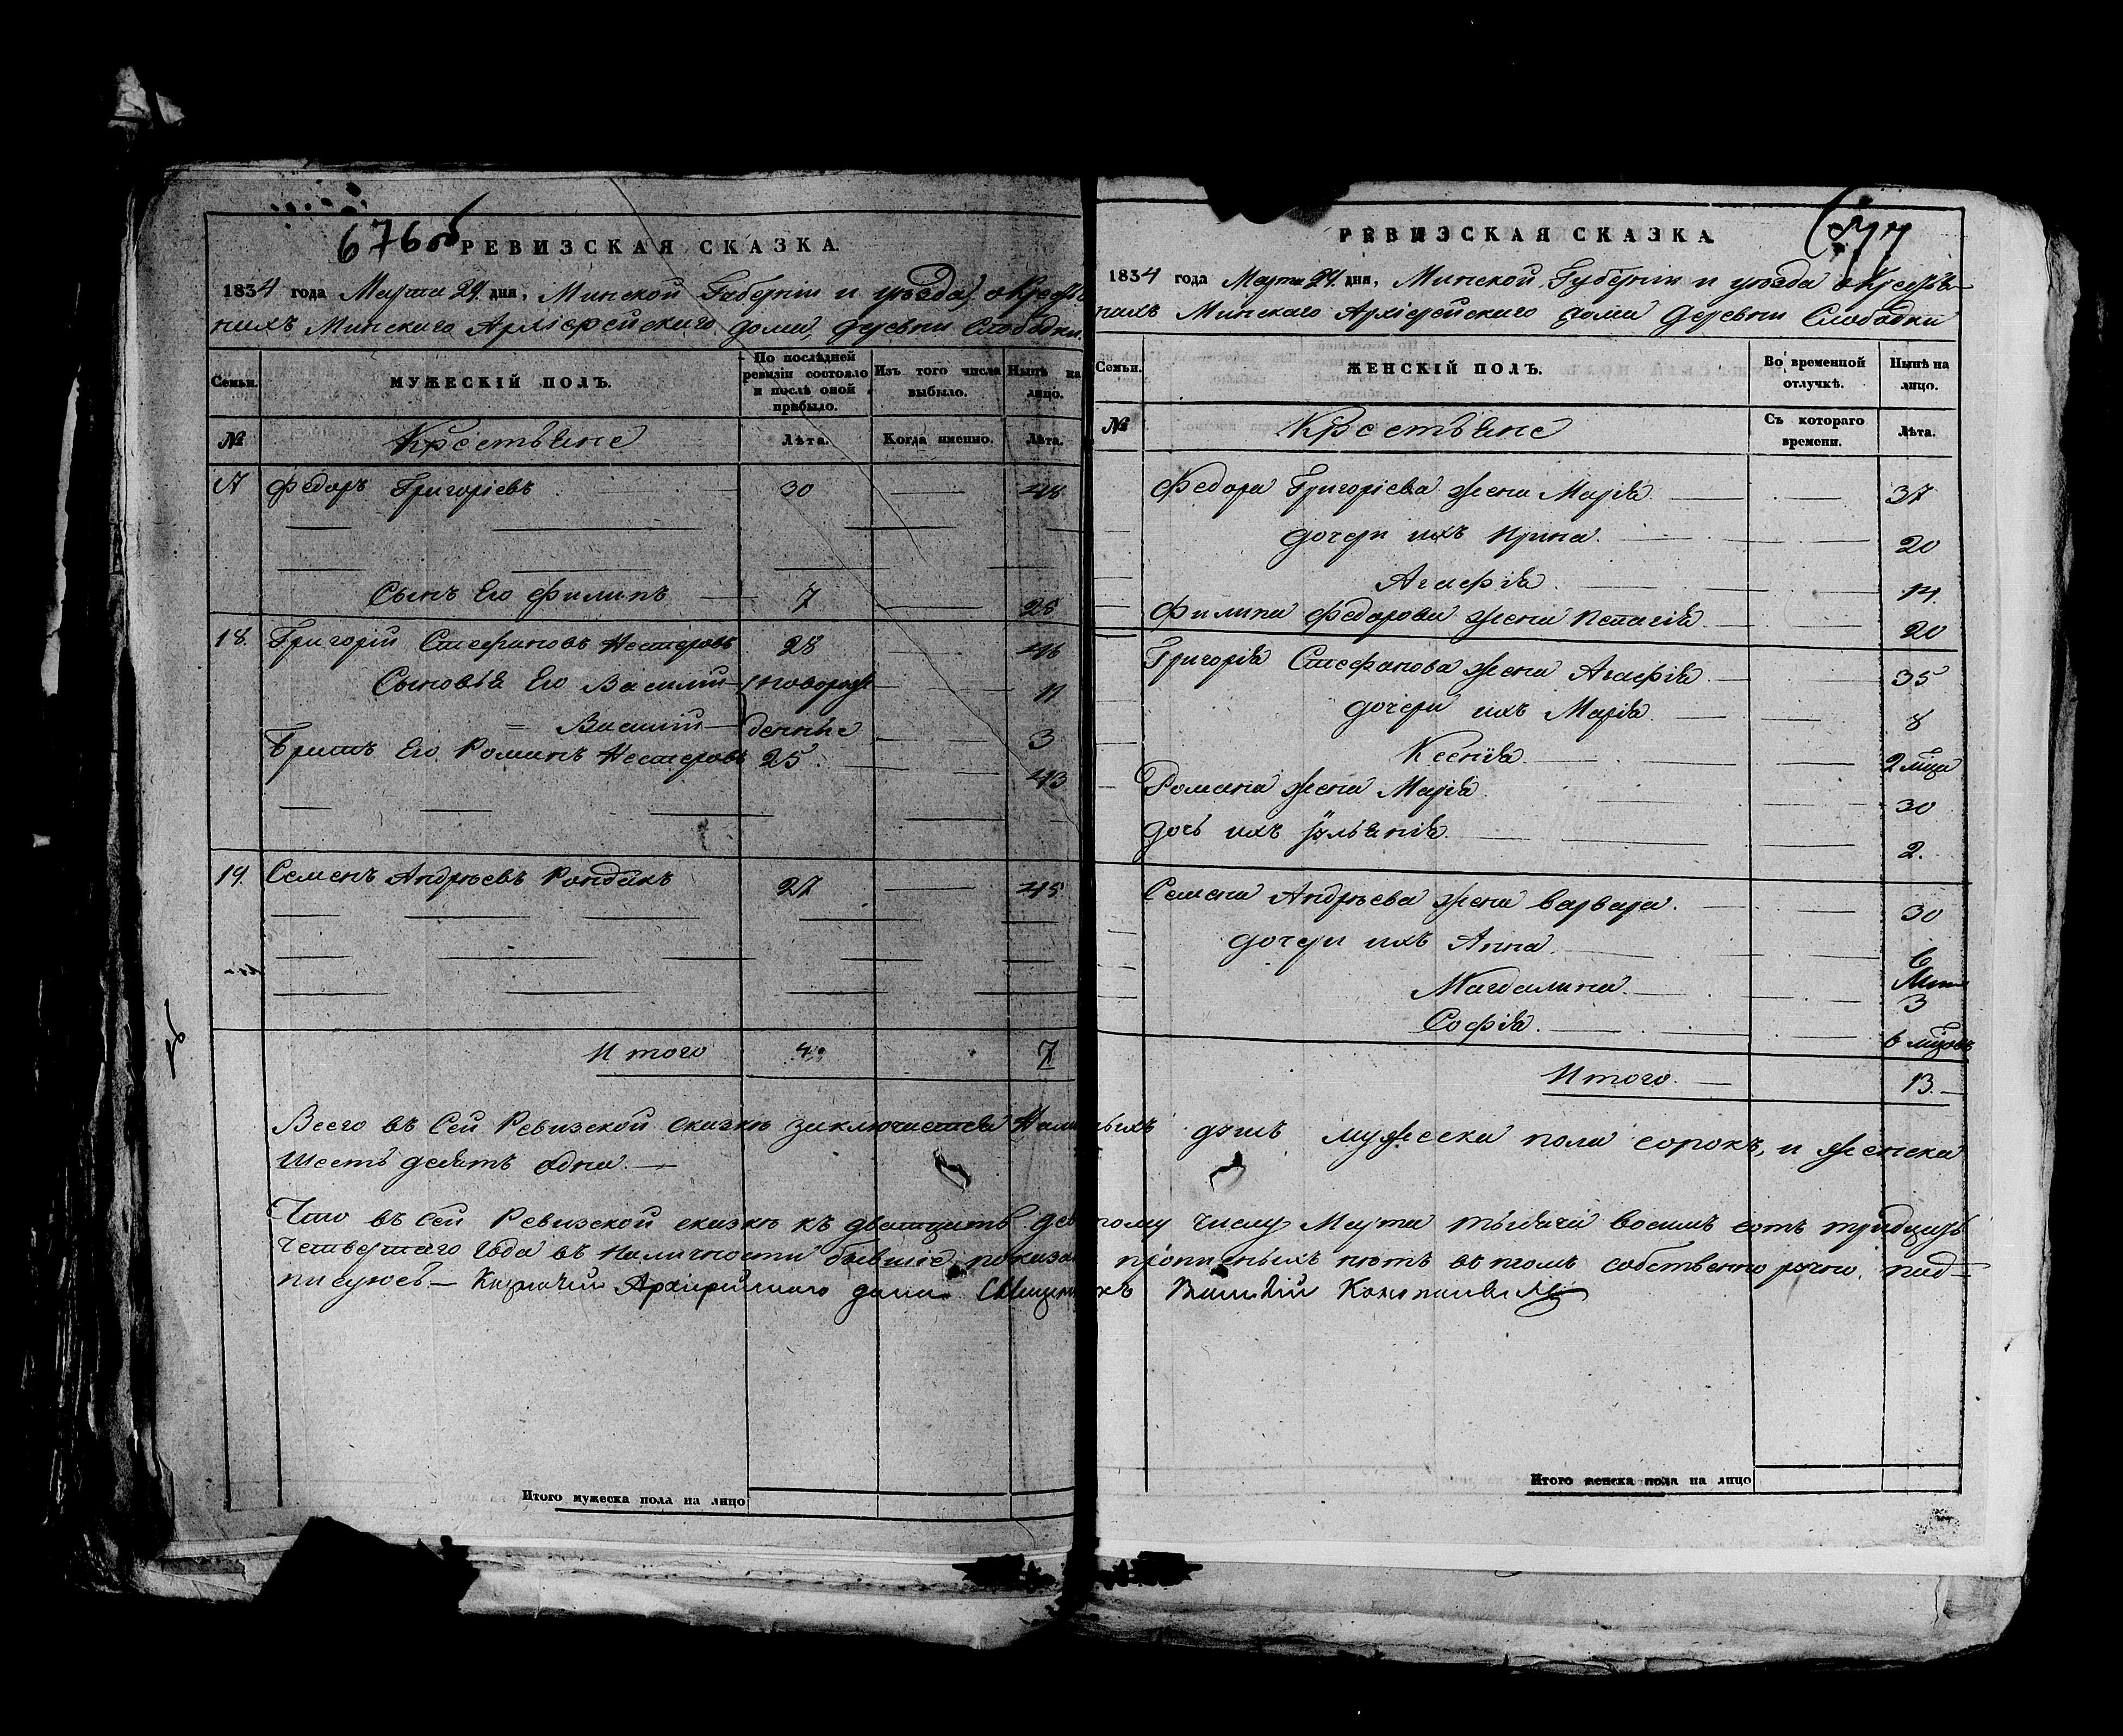 676об
РЕВИЗСКАЯ СКАЗКА
1834 года Марта 29. дня, Минской Губерніи и уѣзда, о Крестья
нахъ Минскаго Архіерейскаго дома, деревни Слободки.
Семьи. МУЖЕСКІЙ ПОЛЪ. По послѣдней ревизіи состояло и послѣ оной прибыло. Изъ того числа выбыло. Нынѣ на лицо.
№ Крестьяне Лѣта. Когда именно. Лѣта.
17 Федоръ Григоріевъ 30 48
Сынъ Его Филипъ 7 25
18. Григорій Стефановъ Нестеровъ 28 46
Сыновья Его Василій новорож 11
= Василій денные 3
Братъ Его Романъ Нестеровъ 25. 43
19. Семенъ Андреевъ Рондакъ 27 45
Итого 4 7
Всего въ Сей Ревизской сказкѣ заключается
шестьдесятъ одна.
Что въ сей Ревизской сказкѣ къ двадцать
четвертаго Года въ наличности бывшіе
писуюсь — Казначей Архіерейскаго дома
677
РЕВИЗСКАЯ СКАЗКА
1834 года Марта 29. дня, Минской Губерніи и уѣзда о Крестья-
нахъ Минскаго Архіерейскаго дома деревни Слободки
Семьи. ЖЕНСКІЙ ПОЛЪ. Во временной отлучкѣ. Нынѣ на лицо.
№ Крестьяне Съ котораго времени. Лѣта.
Федора Григоріева жена Марія 37
дочери ихъ Ирина. 20
Агафія 14
Филипа Федорова жена Пелагія 20
Григорія Стефанова жена Агафія 35
дочери ихъ Марія 8
Ксенія 2 мѣца
Романа жена Марія 30
дочь ихъ Ульянія 2.
Семена Андреева жена Варвара. 30
дочери ихъ Анна 6
Магдалина. 3
Софія. 6 мѣцовъ
Итого. 13.
душъ мужеска пола сорокъ, и женска
тому числу Марта тысяча восемь сотъ тридцать
пропиеныхъ нѣтъ въ томъ собственно ручно. под-
Итого мужеска пола на лицо
Итого женска пола на лицо